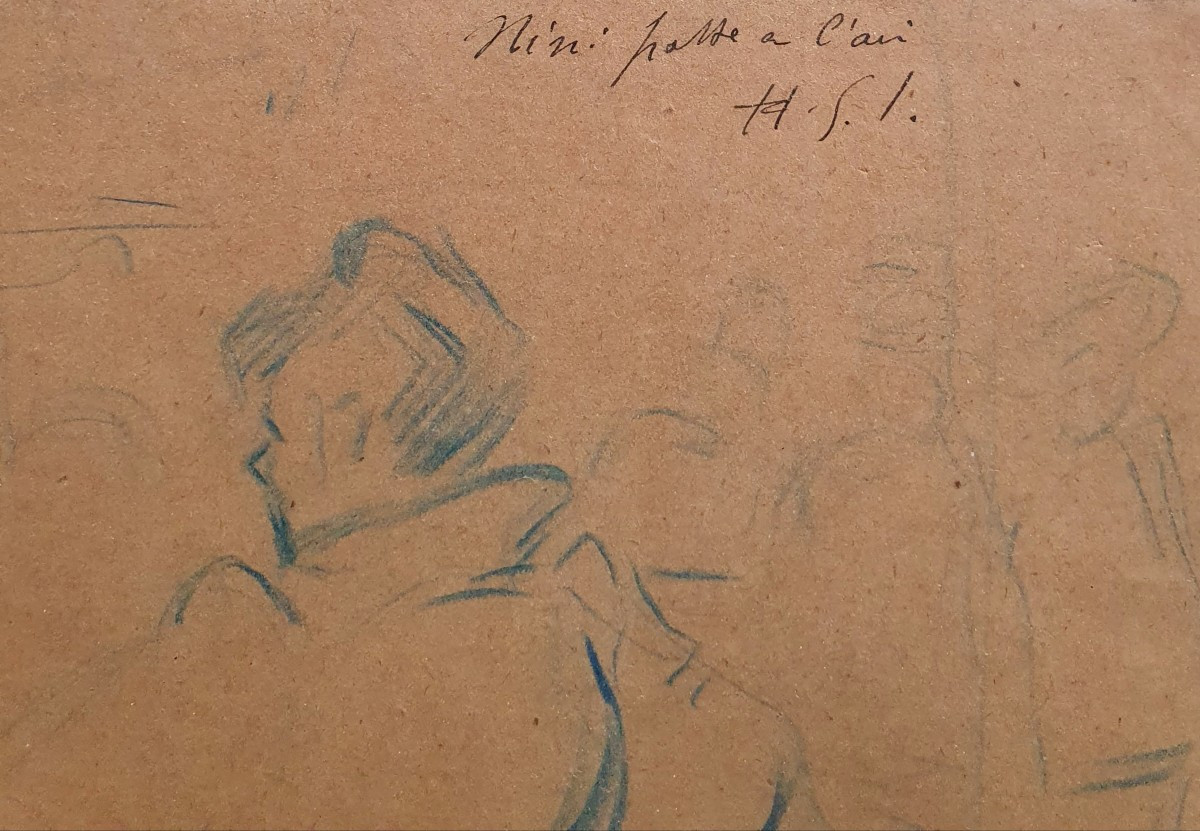 Nini patte a l'air
H.G.I.